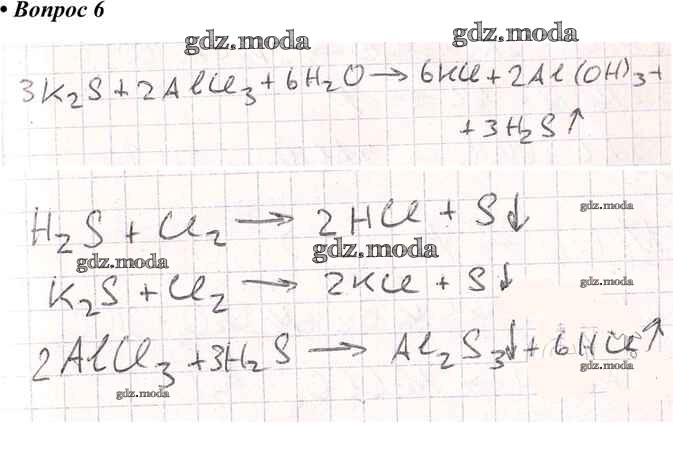 • Вопрос 6
gdz.moda gdz.moda
3K₂S + 2AlCl₃ + 6H₂O → 6KCl + 2Al(OH)₃ +
+ 3H₂S↑
gdz.moda
H₂S + Cl₂ → 2HCl + S↓
gdz.moda gdz.moda
K₂S + Cl₂ → 2KCl + S↓ gdz.moda
2AlCl₃ + 3H₂S → Al₂S₃↓ + 6HCl↑
gdz.moda
gdz.moda